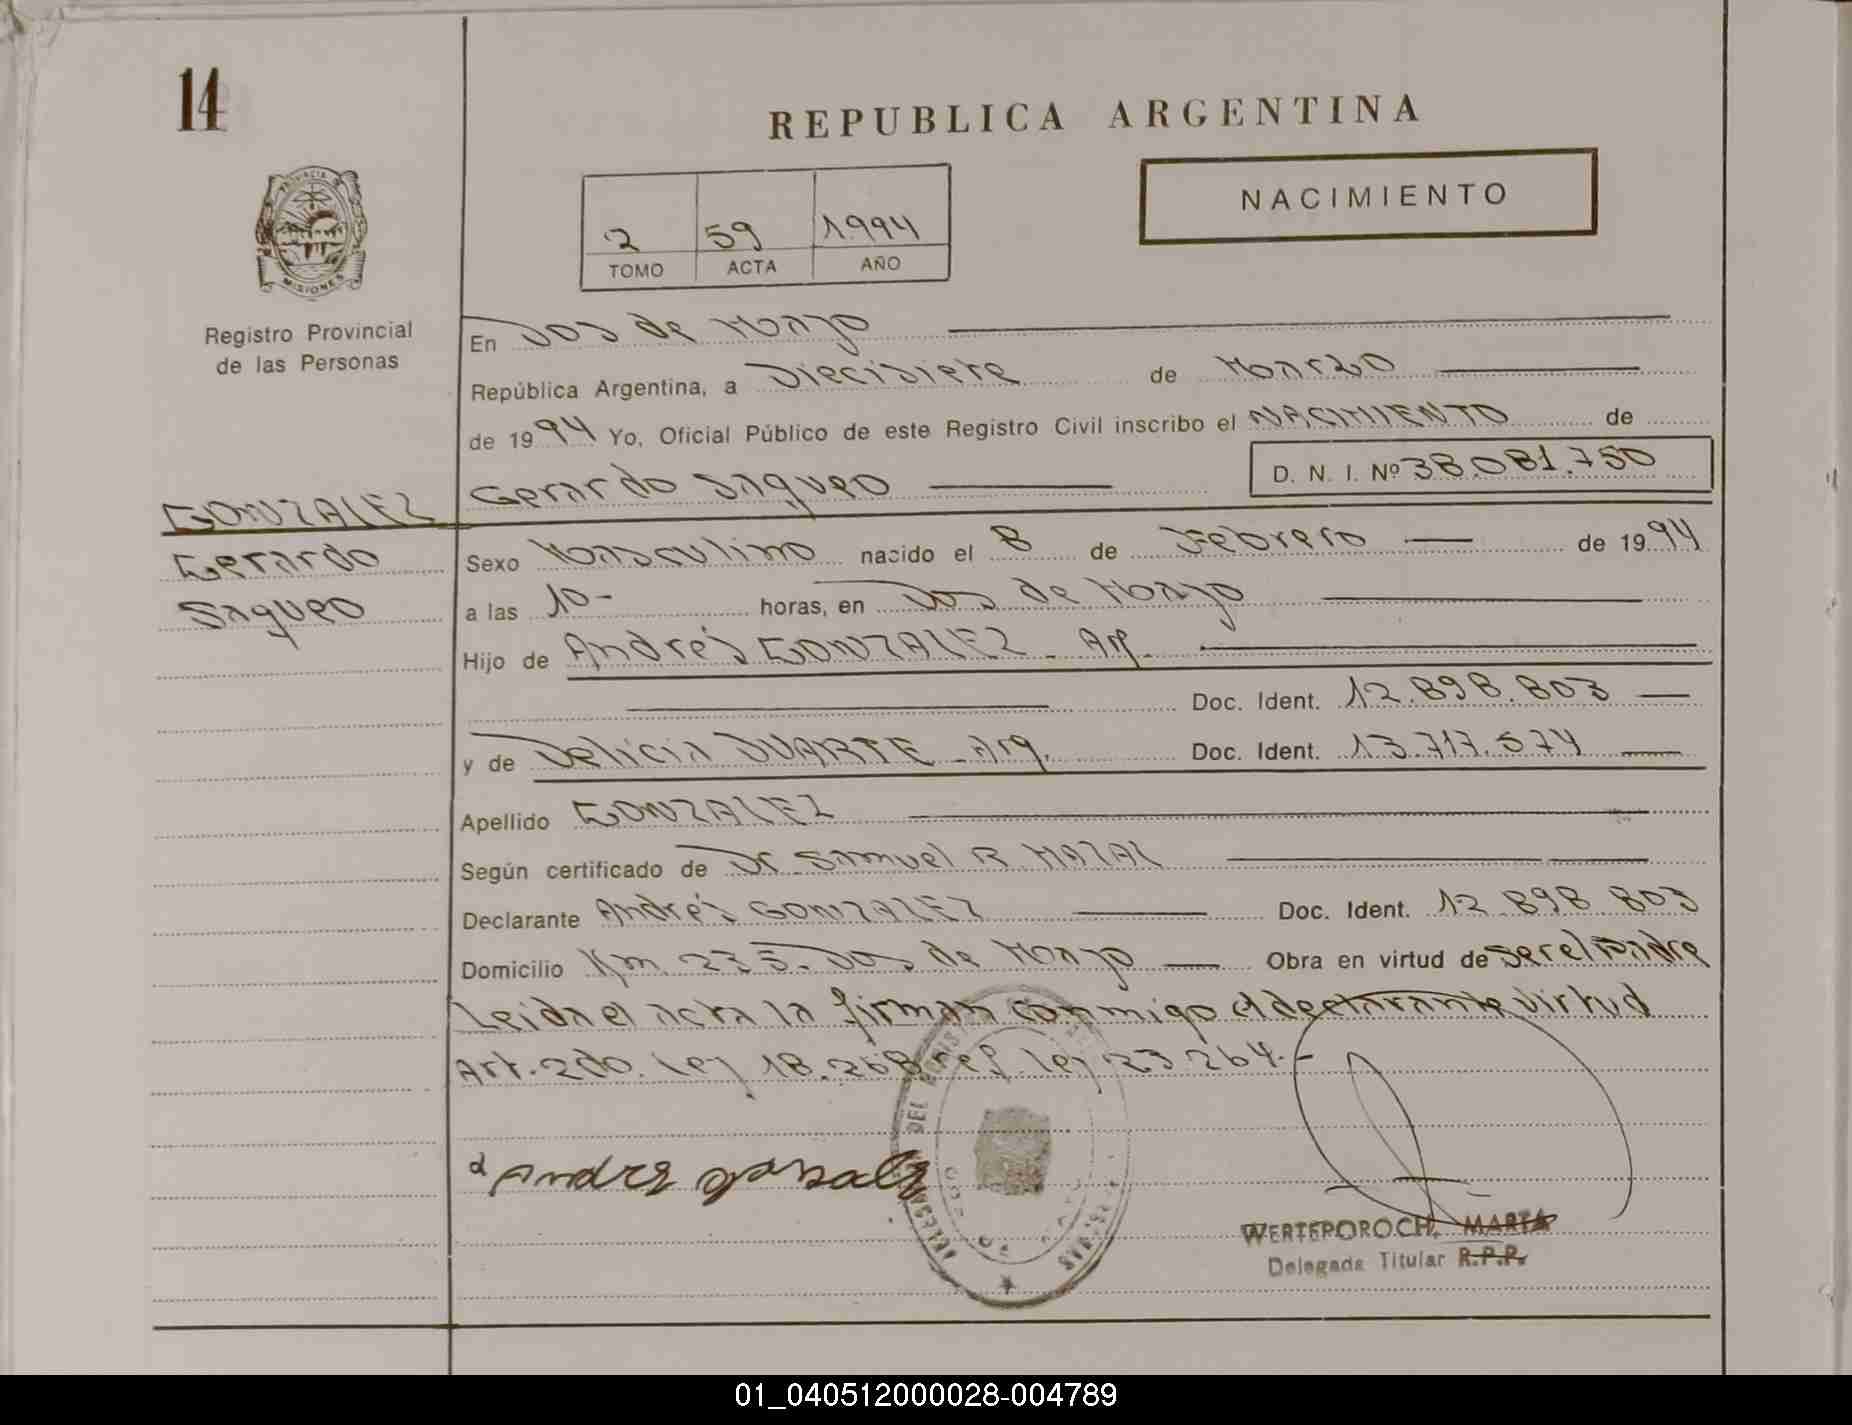 14
REPUBLICA ARGENTINA
NACIMIENTO
2 59 1994
TOMO ACTA AÑO
PROVINCIA DE
MISIONES
Registro Provincial
de las Personas
En Dos de Mayo
República Argentina, a Diecisiete de Marzo
de 1994 Yo, Oficial Público de este Registro Civil inscribo el NACIMIENTO de
Gerardo Saqueo D. N. I. Nº 38.081.750
GONZALEZ
Gerardo
Saqueo
Sexo Masculino nacido el 8 de Febrero de 1994
a las 10- horas, en Dos de Mayo
Hijo de Andrés GONZALEZ - Arg.
Doc. Ident. 12.898.803
y de Delicia DUARTE - Arg. Doc. Ident. 13.717.574
Apellido GONZALEZ
Según certificado de Dr Samuel R MAZAL
Declarante Andrés GONZALEZ Doc. Ident. 12 898 803
Domicilio Km 235. Dos de Mayo Obra en virtud de ser el Padre
Leida el acta la firman conmigo el declarante virtud
Art. 2do. ley 18.268 ref ley 23 264.-
Andre
WERTEPOROCH, MARTA
Delegada Titular R.P.P.
01_040512000028-004789